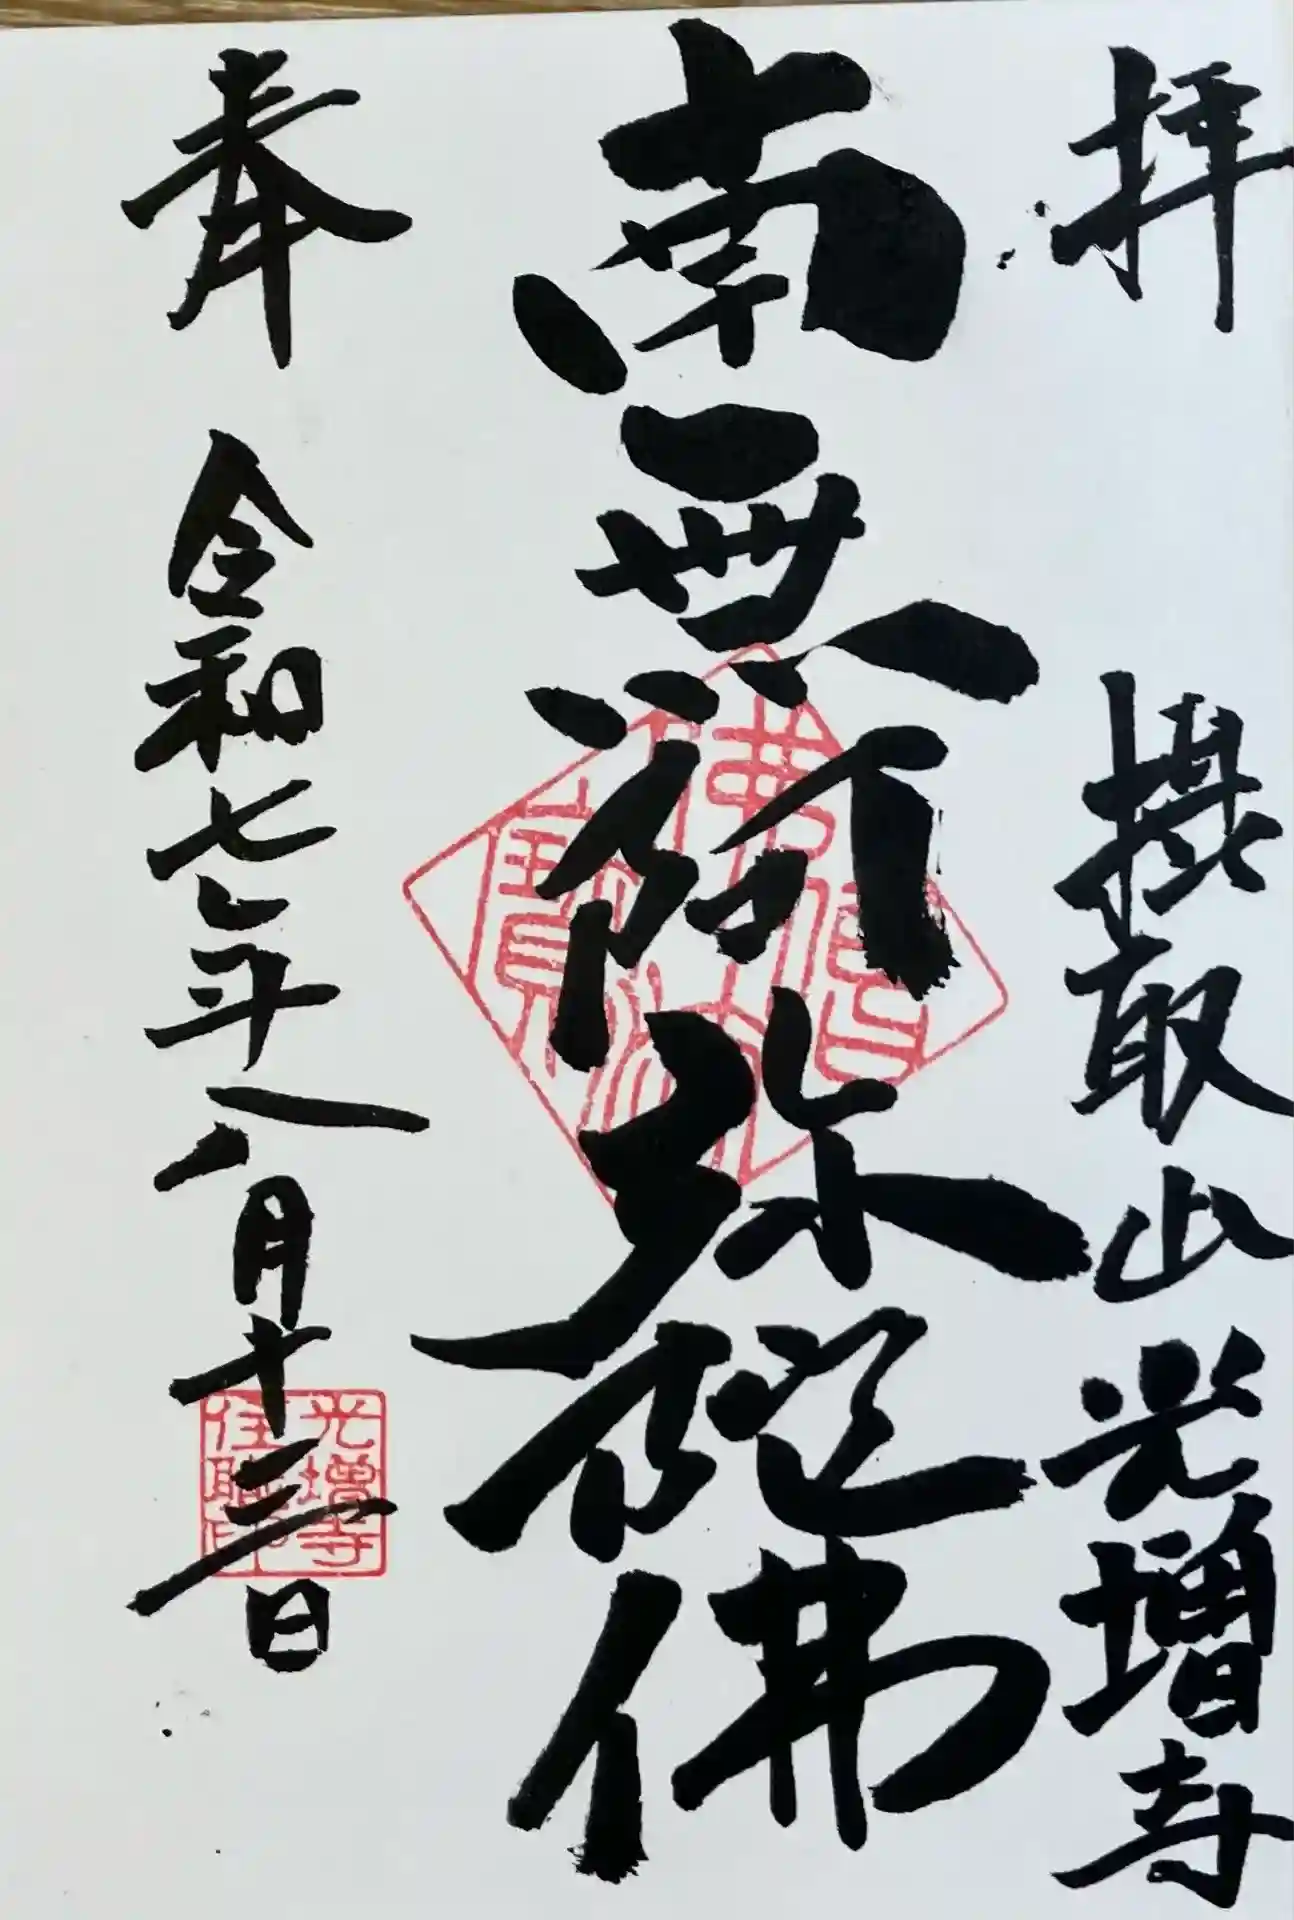 拝 攝取山 光増寺
南無阿弥陀佛
佛法僧寶
奉 令和七年八月十三日
光増寺
住職印